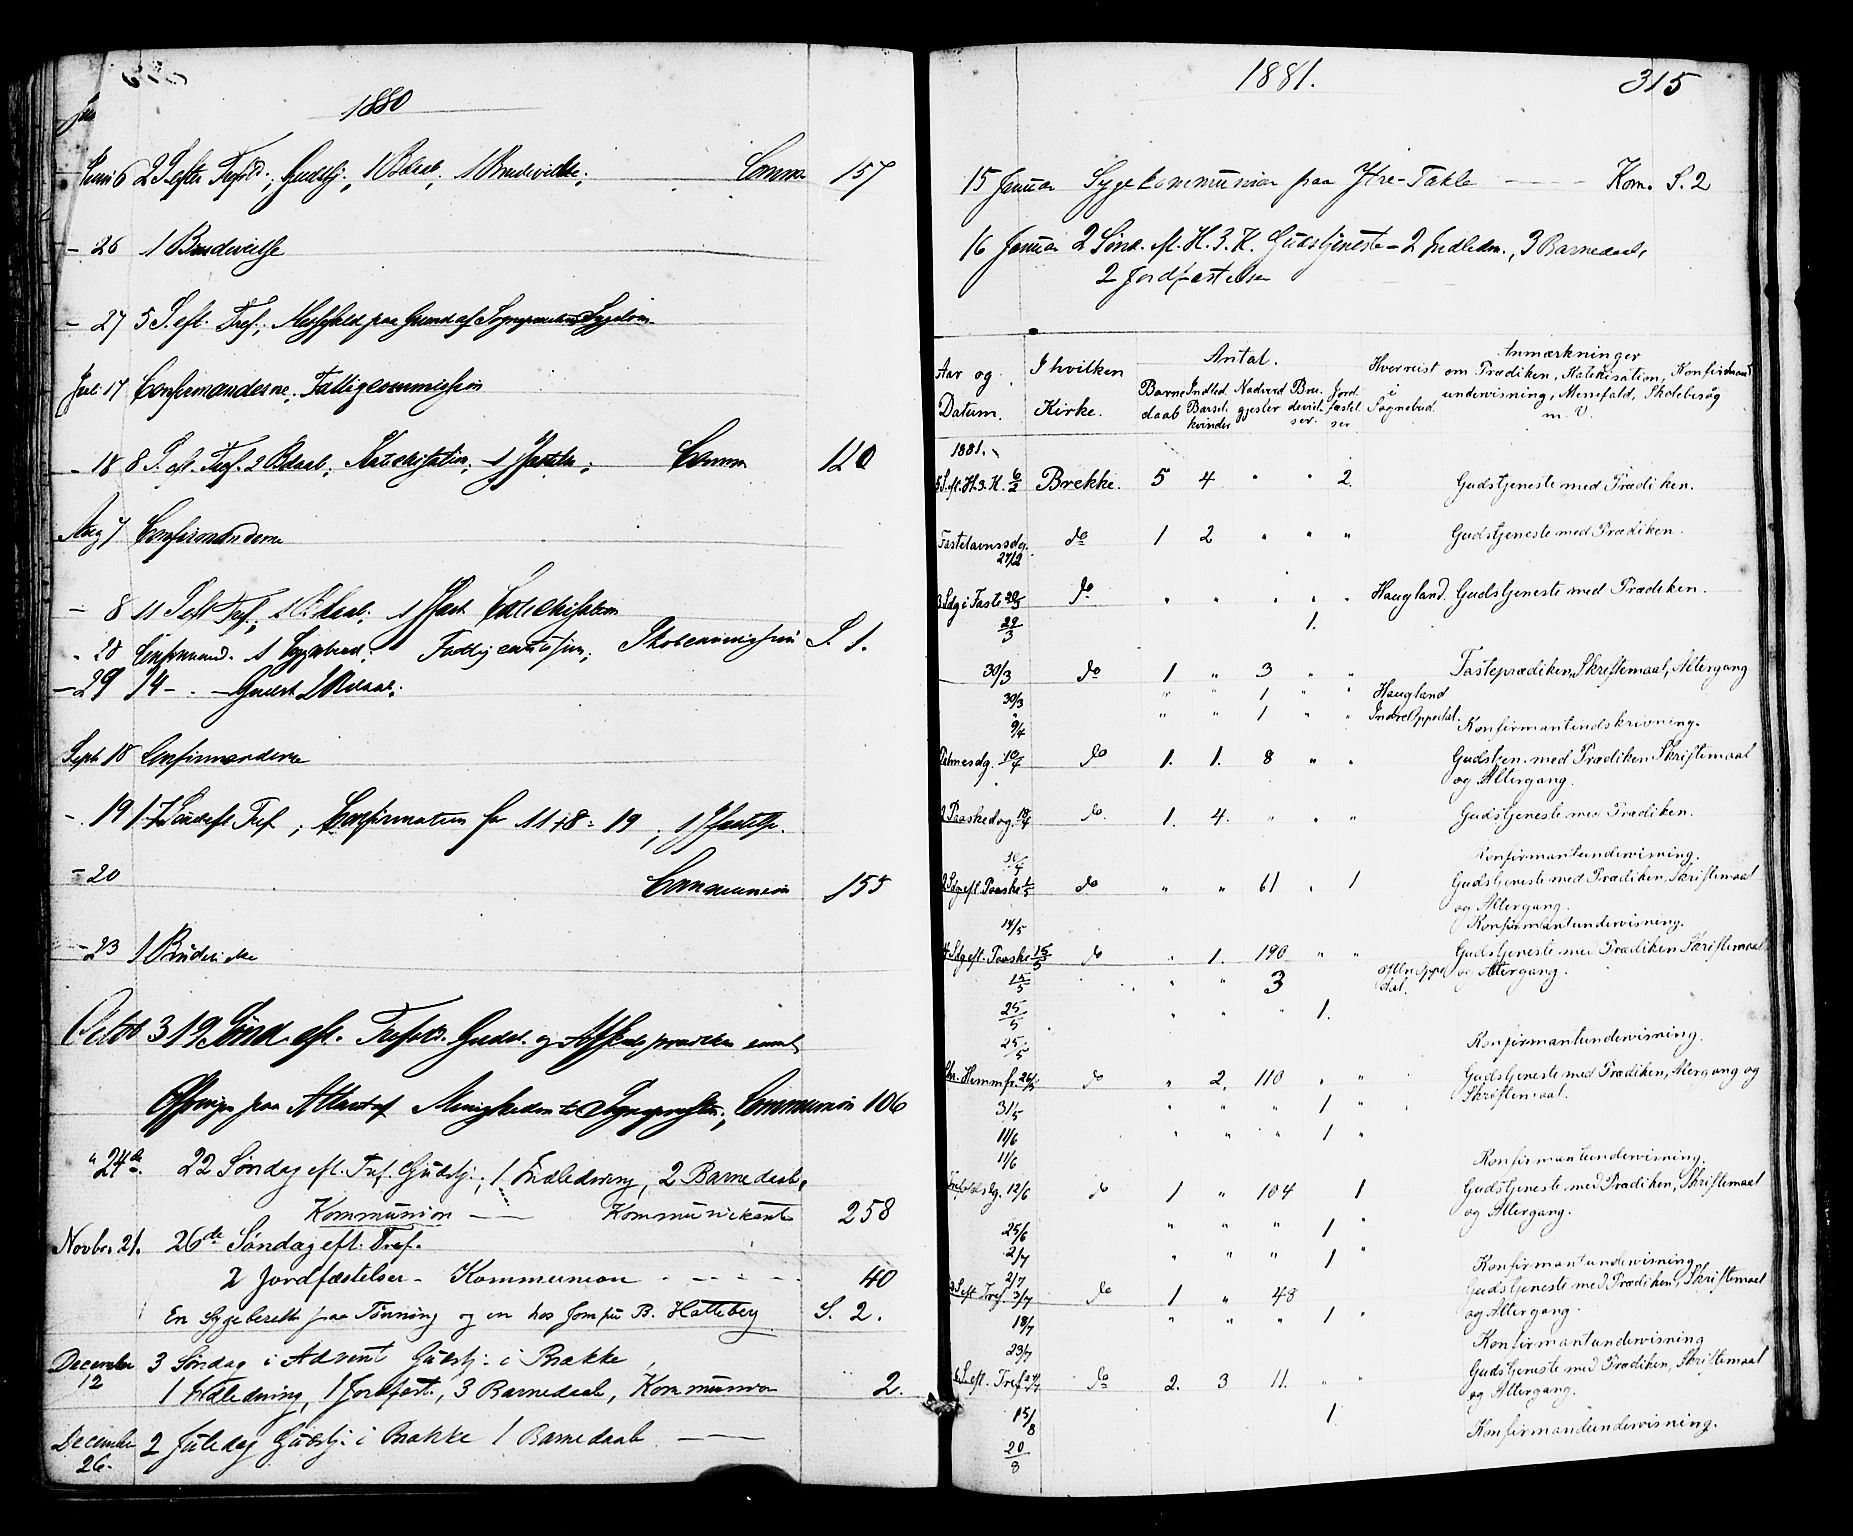 1880
Juni 6 2 S. efter Trefold.; Gudstj., 1 Bdaab; 1 Brudevielse; Comm 157
- 26 1 Brudevielse
- 27 5 S. eft. Tref.; Messefald paa Grund af Sognepræstens Sygdom
Juli 17 Confirmanderne; Fattigcommission
- 18 8 S. eft. Tref. 2 Bdaab; Katekisation; 1 Jfæstelse; Comm 120
Aug 7 Confirmanderne
- 8 11 S eft Tref.; 1 Bdaab; 1 Jfæst Catechisation
- 28 Confirmand. 1 Sygebud; Fattigcommission; Skolecommission S. 1.
- 29 14 - - Gudst 2 Bdaab;
Septr 18 Confirmanderne
- 19 17 Sønd eft Tref; Confirmation for 11 + 8 = 19; 1 Jfæstelse.
- 20 Communion 155
- 23 1 Brudevielse
Octob 3 19 Sønd. eft. Trefold. Gudst. og Afskedsprædiken samt
Offringer paa Alteret af Menigheden til Sognepræsten; Communion 106
" 24de 22 Søndag eft. Tref. Gudstj.; 1 Indledning, 2 Barnedaab,
Kommunion — Kommunikanter 258
Novbr. 21. 26de Søndag eft. Tref.
2 Jordfæstelser - Kommunion - - - - 40
En Sygeberett paa Tønning og en hos B. Hatteberg S. 2.
December 12 3 Søndag i Advent Gudstj. i Brække,
1 Indledning, 1 Jordfæst., 3 Barnedaab, Kommunion 2.
December 26. 2 Juledag Gudstj. i Brække 1 Barnedaab. ———
1881. 315
15 Januar Sygekommunion paa Ytre-Takle - - - - Kom. S. 2
16 Januar 2 Sønd. eft. H. 3. K. Gudstjeneste - 2 Indledn., 3 Barnedaab,
2 Jordfæstelser
Aar og Datum. I hvilken Kirke. Antal. Barnedaab Indled. Barselkvinder Nadverdgjester Brudevielser. Jordfæstelser Hvorreist i Sognebud. Anmærkninger om Prædiken, Katekisation, Konfirmandundervisning, Messefald, Skolebesøg m. V.
1881.
5 S. eft. H. 3. K. 6/2 Brekke. 5 4 " " 2. Gudstjeneste med Prædiken.
Fastelavnssdg. 27/2 do 1 2 " " " Gudstjeneste med Prædiken.
3 Sdg i Faste 20/3 do " " " " " Haugland. Gudstjeneste med Prædiken.
29/3 1.
30/3 do 1 " 3 " " Fasteprædiken, Skriftemaal, Altergang
30/3 " " 1 " " Haugland
9/4 " " 1 " " Indre Oppedal. Konfirmantindskrivning.
Palmesdg. 10/4 do 1. 1. 8 " " Gudstjen. med Prædiken Skriftemaal
og Altergang.
2 Paaskedag. 18/4 do. 1. 4. " " " Gudstjeneste med Prædiken.
30/4 Konfirmantundervisning.
2 Sdg eft. Paaske 1/5 do " " 61 " 1 Gudstjeneste med Prædiken, Skriftemaal
og Altergang.
14/5 Konfirmantundervisning.
4 Sdg eft. Paaske 15/5 do " 1. 190 " " Gudstjeneste med Prædiken Skriftemaal
og Altergang.
15/5 " " 3 Ytre Oppedal.
25/5 " " " 1.
25/5 Konfirmantundervisning.
Chr. Himmfr. 26/5 do " 2. 110 " " Gudstjeneste med Prædiken, Altergang og
Skriftemaal.
31/5 " " " 1 "
11/6 " " " 1 "
11/6 Konfirmantundervisning.
Trefoldsdg. 12/6 do 1 " 104 1 Gudstjeneste med Prædiken, Skriftemaal
og Altergang.
25/6 " " " 1 "
2/7 " " " 1 "
2/7 Konfirmantundervisning
3 S eft Tref 3/7 do 1 " 48 Gudstjeneste med Prædiken, Skriftemaal
og Altergang.
18/7 " " " 1 "
23/7 Konfirmantundervisning
6 S. eft. Tref 24/7 do 2. 3 11. " " Gudstjeneste med Prædiken, Skriftemaal
og Altergang.
15/8 1.
20/8 Konfirmandundervisning.